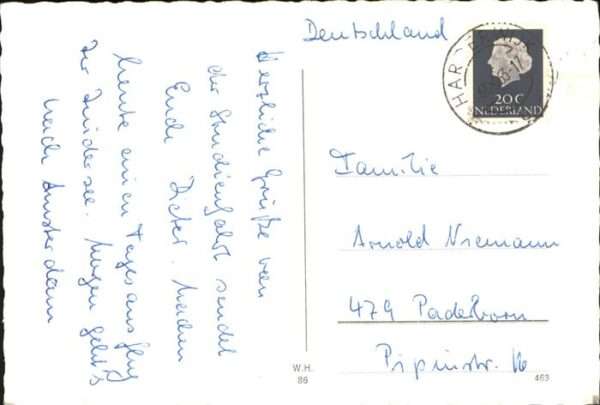 Deutschland
Herzliche Grüße von
der Studienfahrt sendet
Euch Dieter. Machen
heute einen Tagesausflug
zur Zuidersee. Morgen geht's
nach Amsterdam
20 C
NEDERLAND
Familie
Arnold Niemann
479 Paderborn
Pipinstr. 16
W.H.
86
463